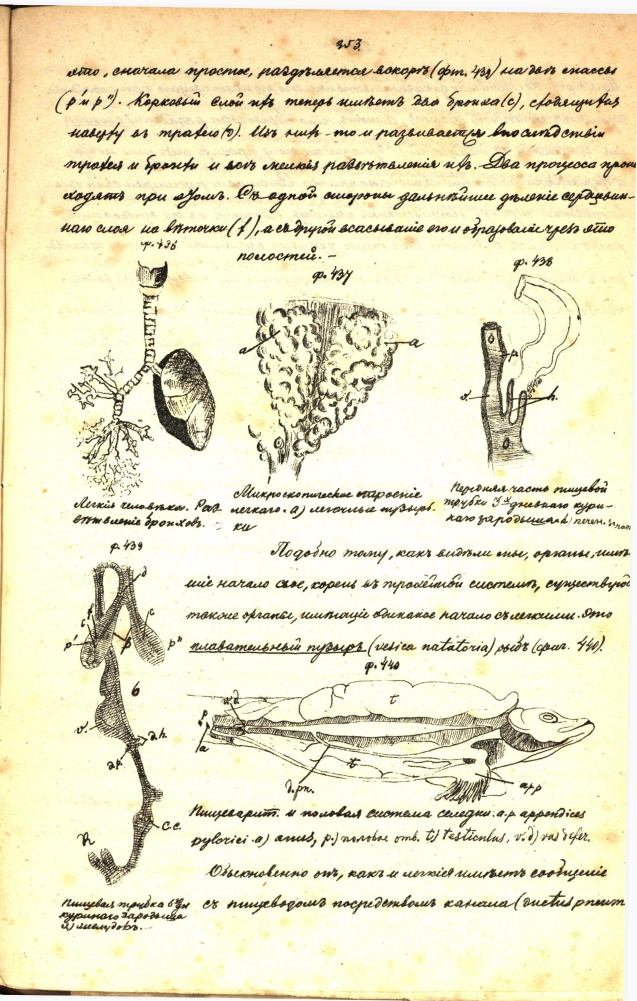 353
это, сначала простое, раздѣляется вскорѣ (фиг. 439) на двѣ массы
(p' и p''). Корковый слой ихъ теперь имѣетъ два бронха (c), сходящихся
наверху въ трахею (b). Изъ нихъ-то и развивается впослѣдствіи
трахея и бронхи и всѣ мелкія развѣтвленія ихъ. Два процесса прои
ходятъ при этомъ. Съ одной стороны дальнѣйшее дѣленіе сердцевин-
наго слоя на вѣточки (f), а съ другой всасываніе его и образованіе чрезъ это
полостей. —
ф. 436
ф. 437
ф. 438
a
a
p.
h.
Легкія человѣка. Раз
вѣтвленіе бронховъ.
Микроскопическое строеніе
легкаго. a) легочные пузырь
ки
Передняя часть пищевой
трубки 3х дневнаго кури-
наго зародыша
ф. 439
d
c
c
p'
p
p''
6
v.
d.h.
d.p.
c.c.
R
Пищевая трубка 6 дн
куринаго зародыша
желудокъ. —
Подобно тому, какъ видѣли мы, органы, имѣ
шіе начало свое, корень въ прожитой системѣ, существуютъ
также органы, имѣющіе одинакое начало съ легкими. Это
плавательный пузырь (vesica natatoria) рыбъ (фиг. 440).
ф. 440
t
v.d
p
a
t
d.pn.
a.p.p
Пищеварит. и половая система селедки. a.p appendices
pylorici. a) anus, p.) половое отв. t) testiculus, v.d) vas defer.
Обыкновенно онъ, какъ и легкія имѣетъ сообщеніе
съ пищеводомъ посредствомъ канала (ductus pneum